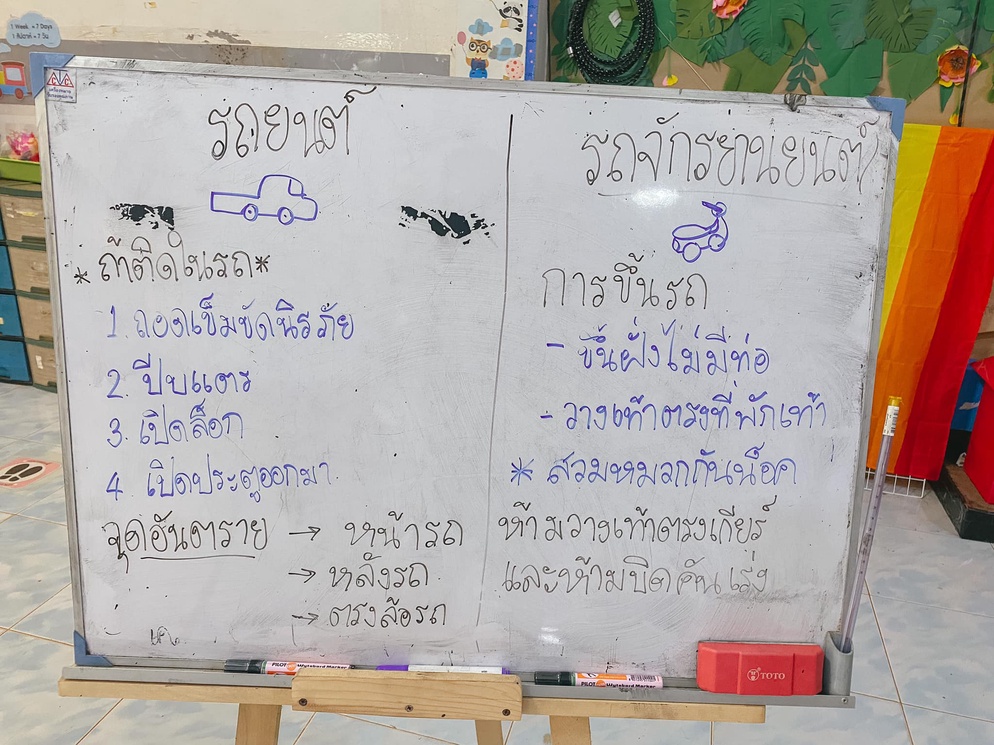 1 Week = 7 Days
1 สัปดาห์ = 7 วัน
รถยนต์
* ถ้าติดในรถ*
1. ถอดเข็มขัดนิรภัย
2. บีบแตร
3. เปิดล็อก
4. เปิดประตูออกมา
จุดอันตราย → หน้ารถ
→ หลังรถ
→ ตรงล้อรถ
รถจักรยานยนต์
การขึ้นรถ
- ขึ้นฝั่งไม่มีท่อ
- วางเท้าตรงที่พักเท้า
* สวมหมวกกันน็อค
ห้ามวางเท้าตรงเกียร์
และห้ามบิดคันเร่ง
PILOT Wytebord Marker
PILOT Wytebord Marker
TOTO